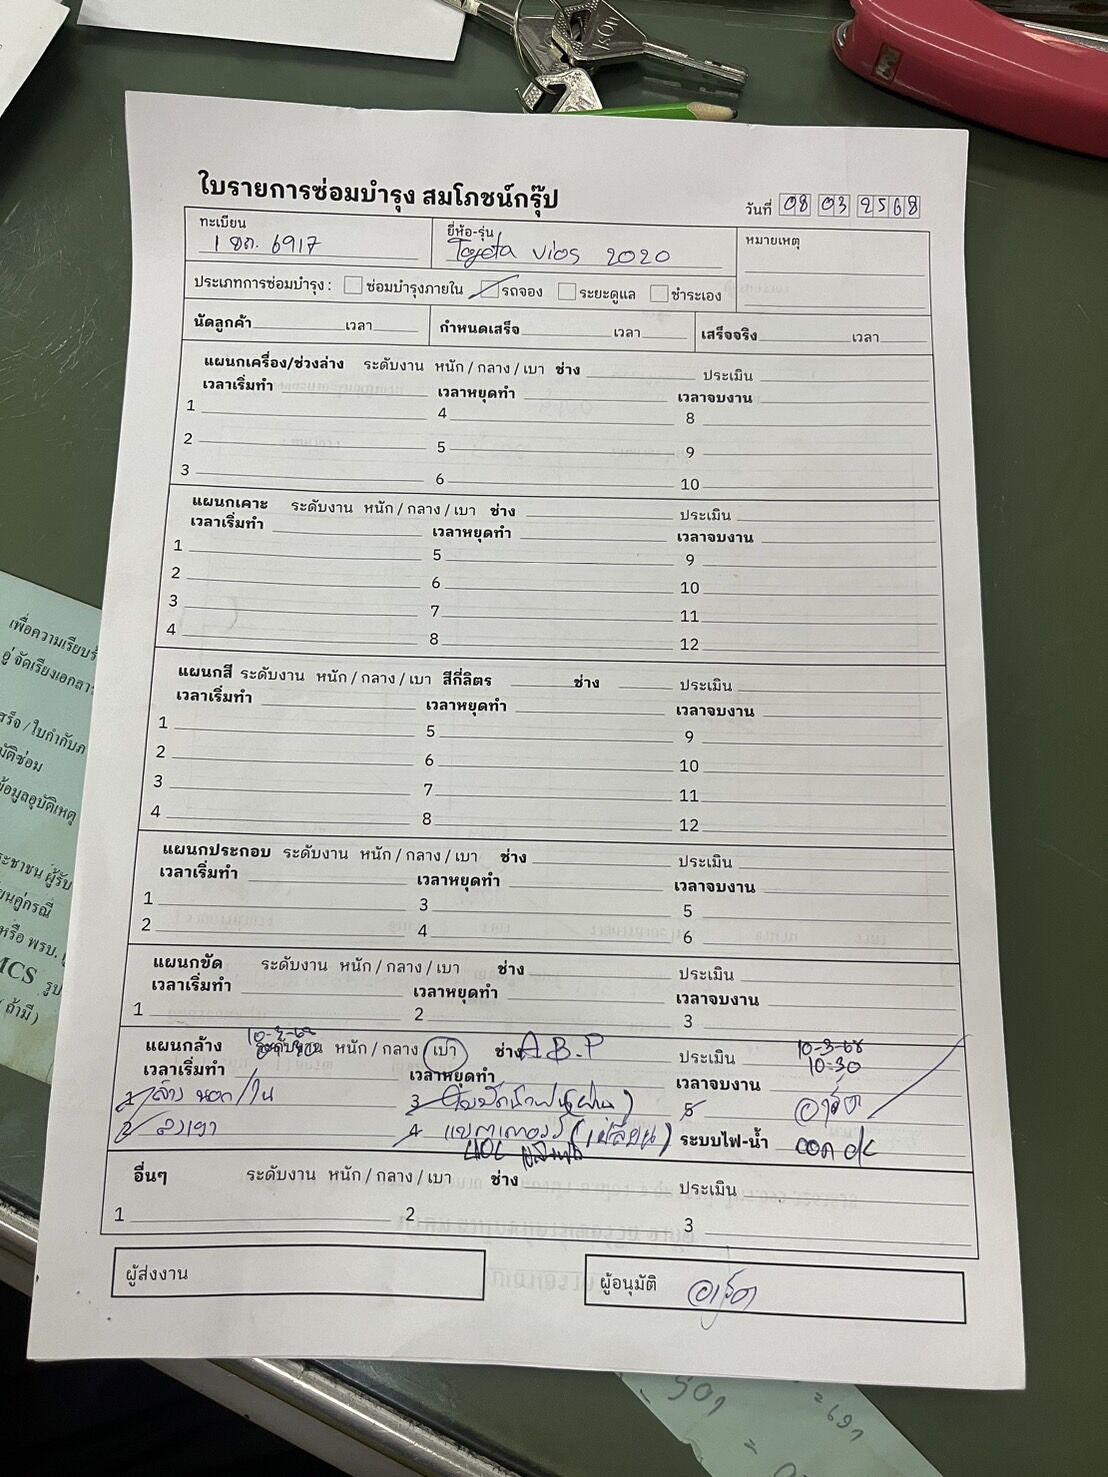 ใบรายการซ่อมบำรุง สมโภชน์กรุ๊ป
วันที่ 08 03 2568
ทะเบียน
6917
ยี่ห้อ-รุ่น
Toyota vios 2020
หมายเหตุ
ประเภทการซ่อมบำรุง : ซ่อมบำรุงภายใน รถจอง ระยะดูแล ชำระเอง
นัดลูกค้า เวลา กำหนดเสร็จ เวลา เสร็จจริง เวลา
แผนกเครื่อง/ช่วงล่าง ระดับงาน หนัก / กลาง / เบา ช่าง ประเมิน
เวลาเริ่มทำ เวลาหยุดทำ เวลาจบงาน
1 4 8
2 5 9
3 6 10
แผนกเคาะ ระดับงาน หนัก / กลาง / เบา ช่าง ประเมิน
เวลาเริ่มทำ เวลาหยุดทำ เวลาจบงาน
1 5 9
2 6 10
3 7 11
4 8 12
แผนกสี ระดับงาน หนัก / กลาง / เบา สีกี่ลิตร ช่าง ประเมิน
เวลาเริ่มทำ เวลาหยุดทำ เวลาจบงาน
1 5 9
2 6 10
3 7 11
4 8 12
แผนกประกอบ ระดับงาน หนัก / กลาง / เบา ช่าง ประเมิน
เวลาเริ่มทำ เวลาหยุดทำ เวลาจบงาน
1 3 5
2 4 6
แผนกขัด ระดับงาน หนัก / กลาง / เบา ช่าง ประเมิน
เวลาเริ่มทำ เวลาหยุดทำ เวลาจบงาน
1 2 3
แผนกล้าง ระดับงาน หนัก / กลาง / เบา ช่าง A.B.P ประเมิน 10-3-68
10-30
เวลาเริ่มทำ เวลาหยุดทำ เวลาจบงาน
1 ล้าง นอก/ใน 3 5
2 4 แบตเตอรี่ (เปลี่ยน) ระบบไฟ-น้ำ ok
อื่นๆ ระดับงาน หนัก / กลาง / เบา ช่าง ประเมิน
1 2 3
ผู้ส่งงาน ผู้อนุมัติ
เพื่อความเรียบร้
อู่ จัดเรียงเอกสาร
สร็จ / ใบกำกับภ
มัติซ่อม
ข้อมูลอุบัติเหตุ
ระชาชน ผู้รับ
ยนคู่กรณี
หรือ พรบ.
MCS รูป
( ถ้ามี )